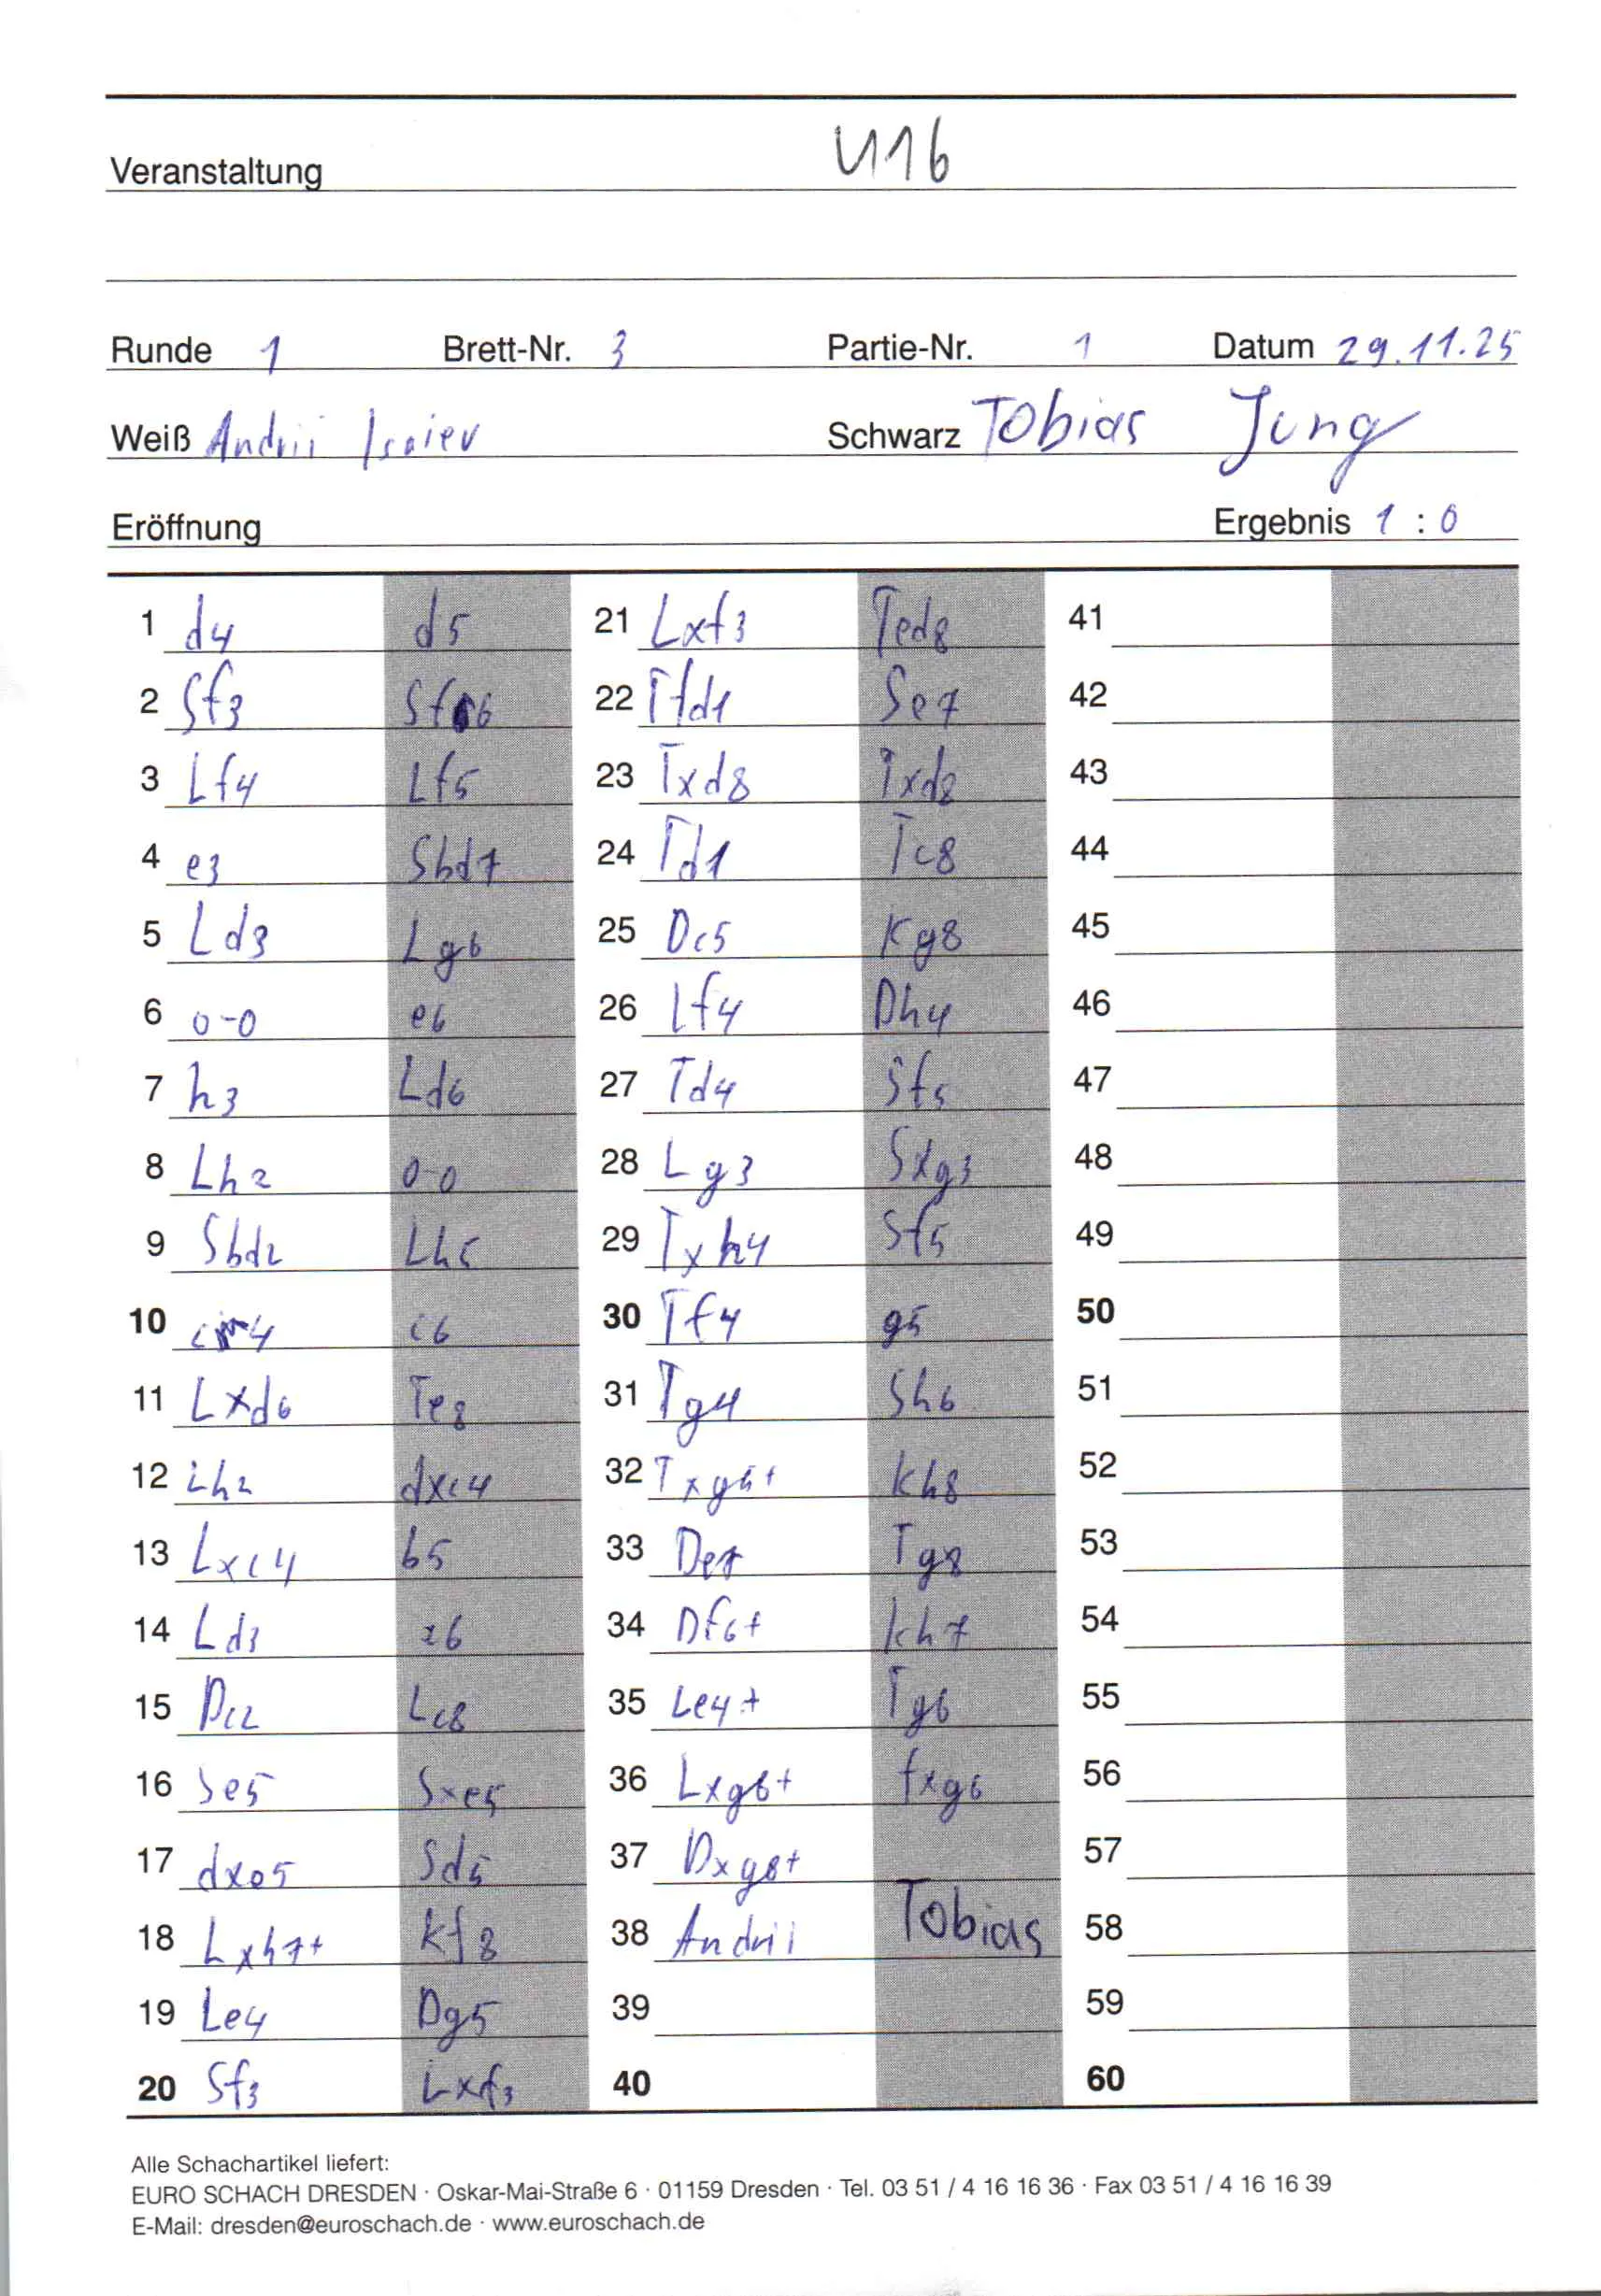 Veranstaltung U16
Runde 1 Brett-Nr. 3 Partie-Nr. 1 Datum 29.11.25
Weiß Andrii Isaiev Schwarz Tobias Jung
Eröffnung Ergebnis 1 : 0
1 d4 d5 21 Lxf3 Ted8 41
2 Sf3 Sf6 22 Tfd1 Se7 42
3 Lf4 Lf5 23 Txd8 Txd8 43
4 e3 Sbd7 24 Td1 Tc8 44
5 Ld3 Lg6 25 Dc5 Kg8 45
6 0-0 e6 26 Lf4 Dh4 46
7 h3 Ld6 27 Td4 Sf5 47
8 Lh2 0-0 28 Lg3 Sxg3 48
9 Sbd2 Lh5 29 Txh4 Sf5 49
10 c4 c6 30 Tf4 g5 50
11 Lxd6 Te8 31 Tg4 Sh6 51
12 Lh2 dxc4 32 Txg5+ Kh8 52
13 Lxc4 b5 33 De7 Tg8 53
14 Ld3 a6 34 Df6+ Kh7 54
15 Dc2 Lc8 35 Le4+ Tg6 55
16 Se5 Sxe5 36 Lxg6+ fxg6 56
17 dxe5 Sd5 37 Dxg6+ 57
18 Lxh7+ Kf8 38 Andrii Tobias 58
19 Le4 Dg5 39 59
20 Sf3 Lxf3 40 60
Alle Schachartikel liefert:
EURO SCHACH DRESDEN · Oskar-Mai-Straße 6 · 01159 Dresden · Tel. 03 51 / 4 16 16 36 · Fax 03 51 / 4 16 16 39
E-Mail: dresden@euroschach.de · www.euroschach.de